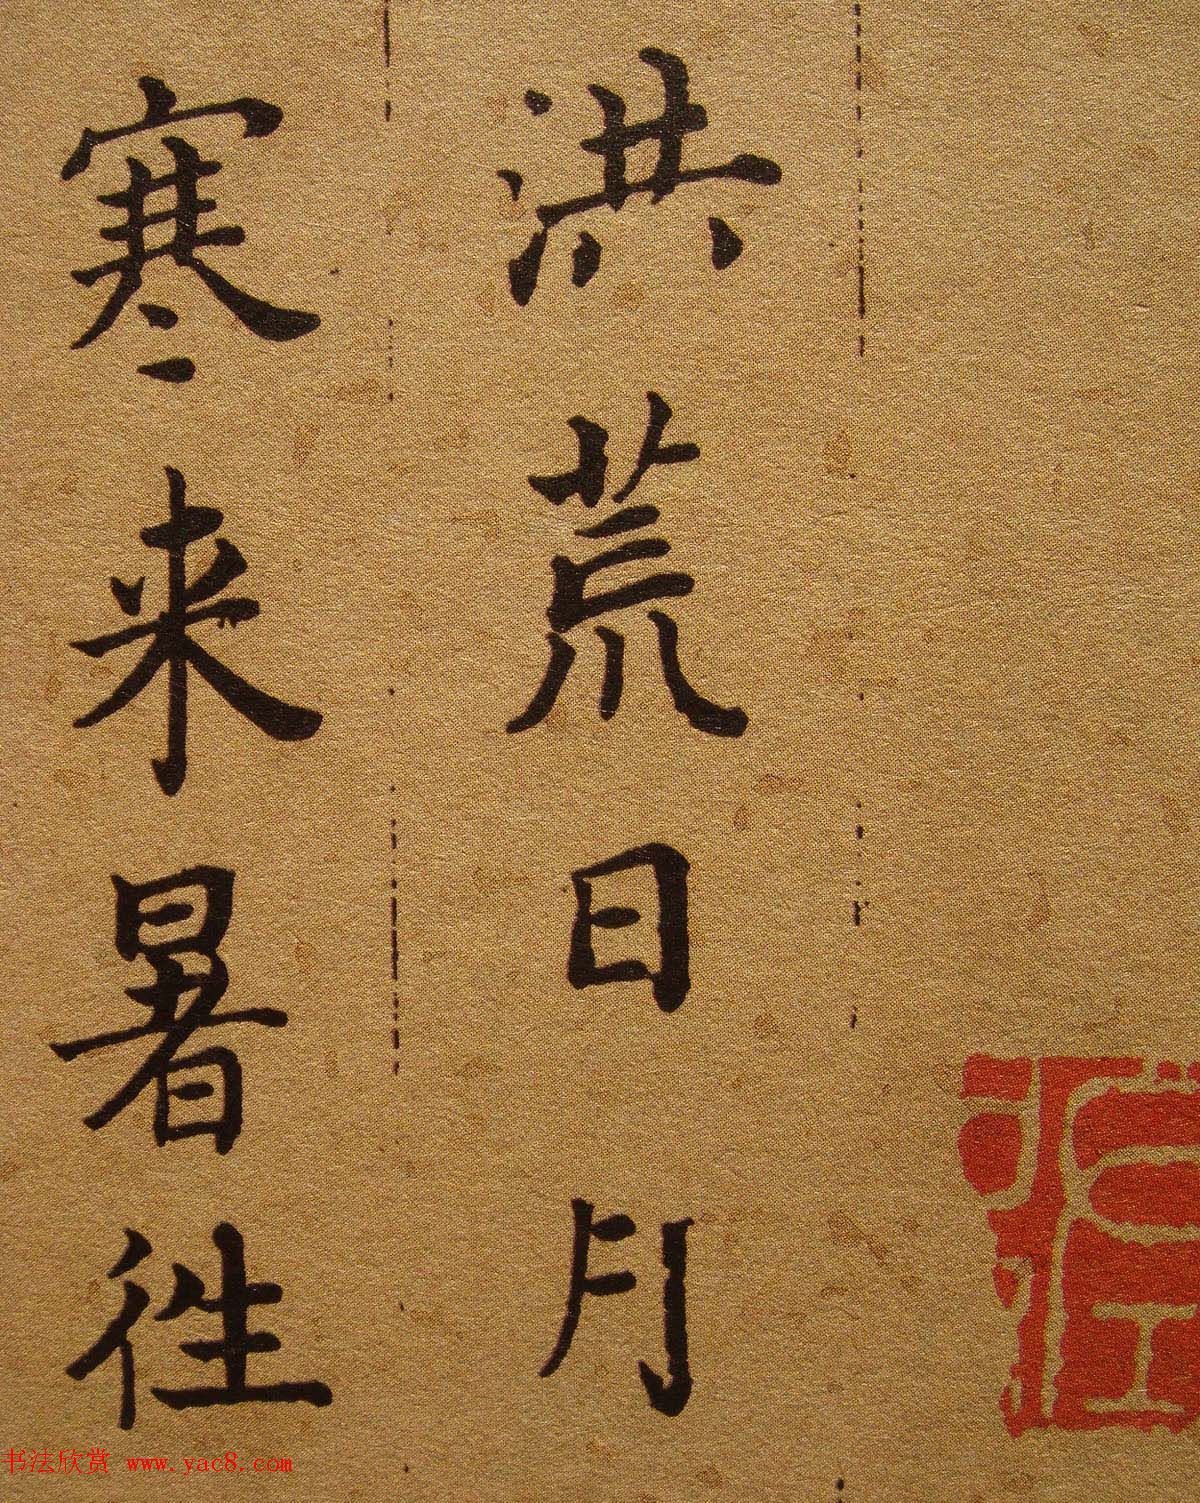 洪荒日月
寒来暑往
书法欣赏 www.yac8.com